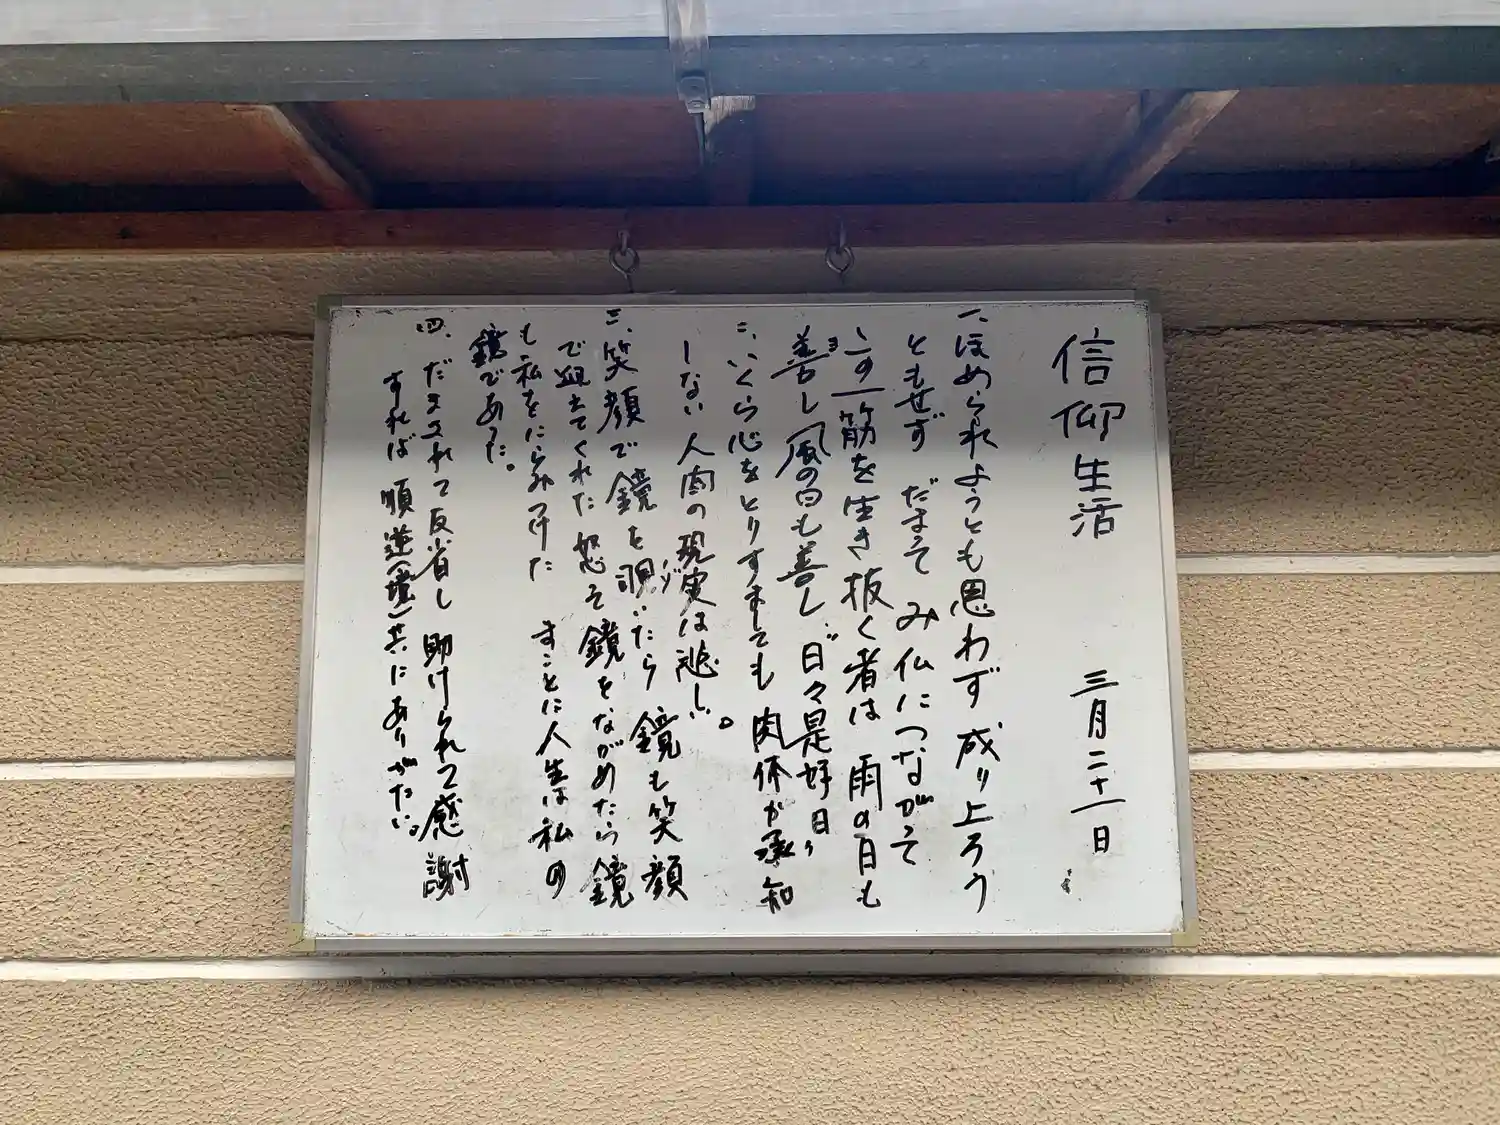 信仰生活　三月二十一日
一、ほめられようとも思わず 成り上ろう
ともせず だまって み仏につながって
この一筋を生き抜く者は 雨の日も
善し(ヨ) 風の日も善し、“日々是好日”
二、いくら心をとりすましても 肉体が承知
しない 人間の現実は悲し。
三、笑顔で鏡を覗(ノゾ)いたら 鏡も笑顔
で迎えてくれた 怒って鏡をながめたら 鏡
も私をにらみつけた まことに人生は私の
鏡であった。
四、だまされて反省し 助けられて感謝
すれば 順逆(境)共にありがたい。